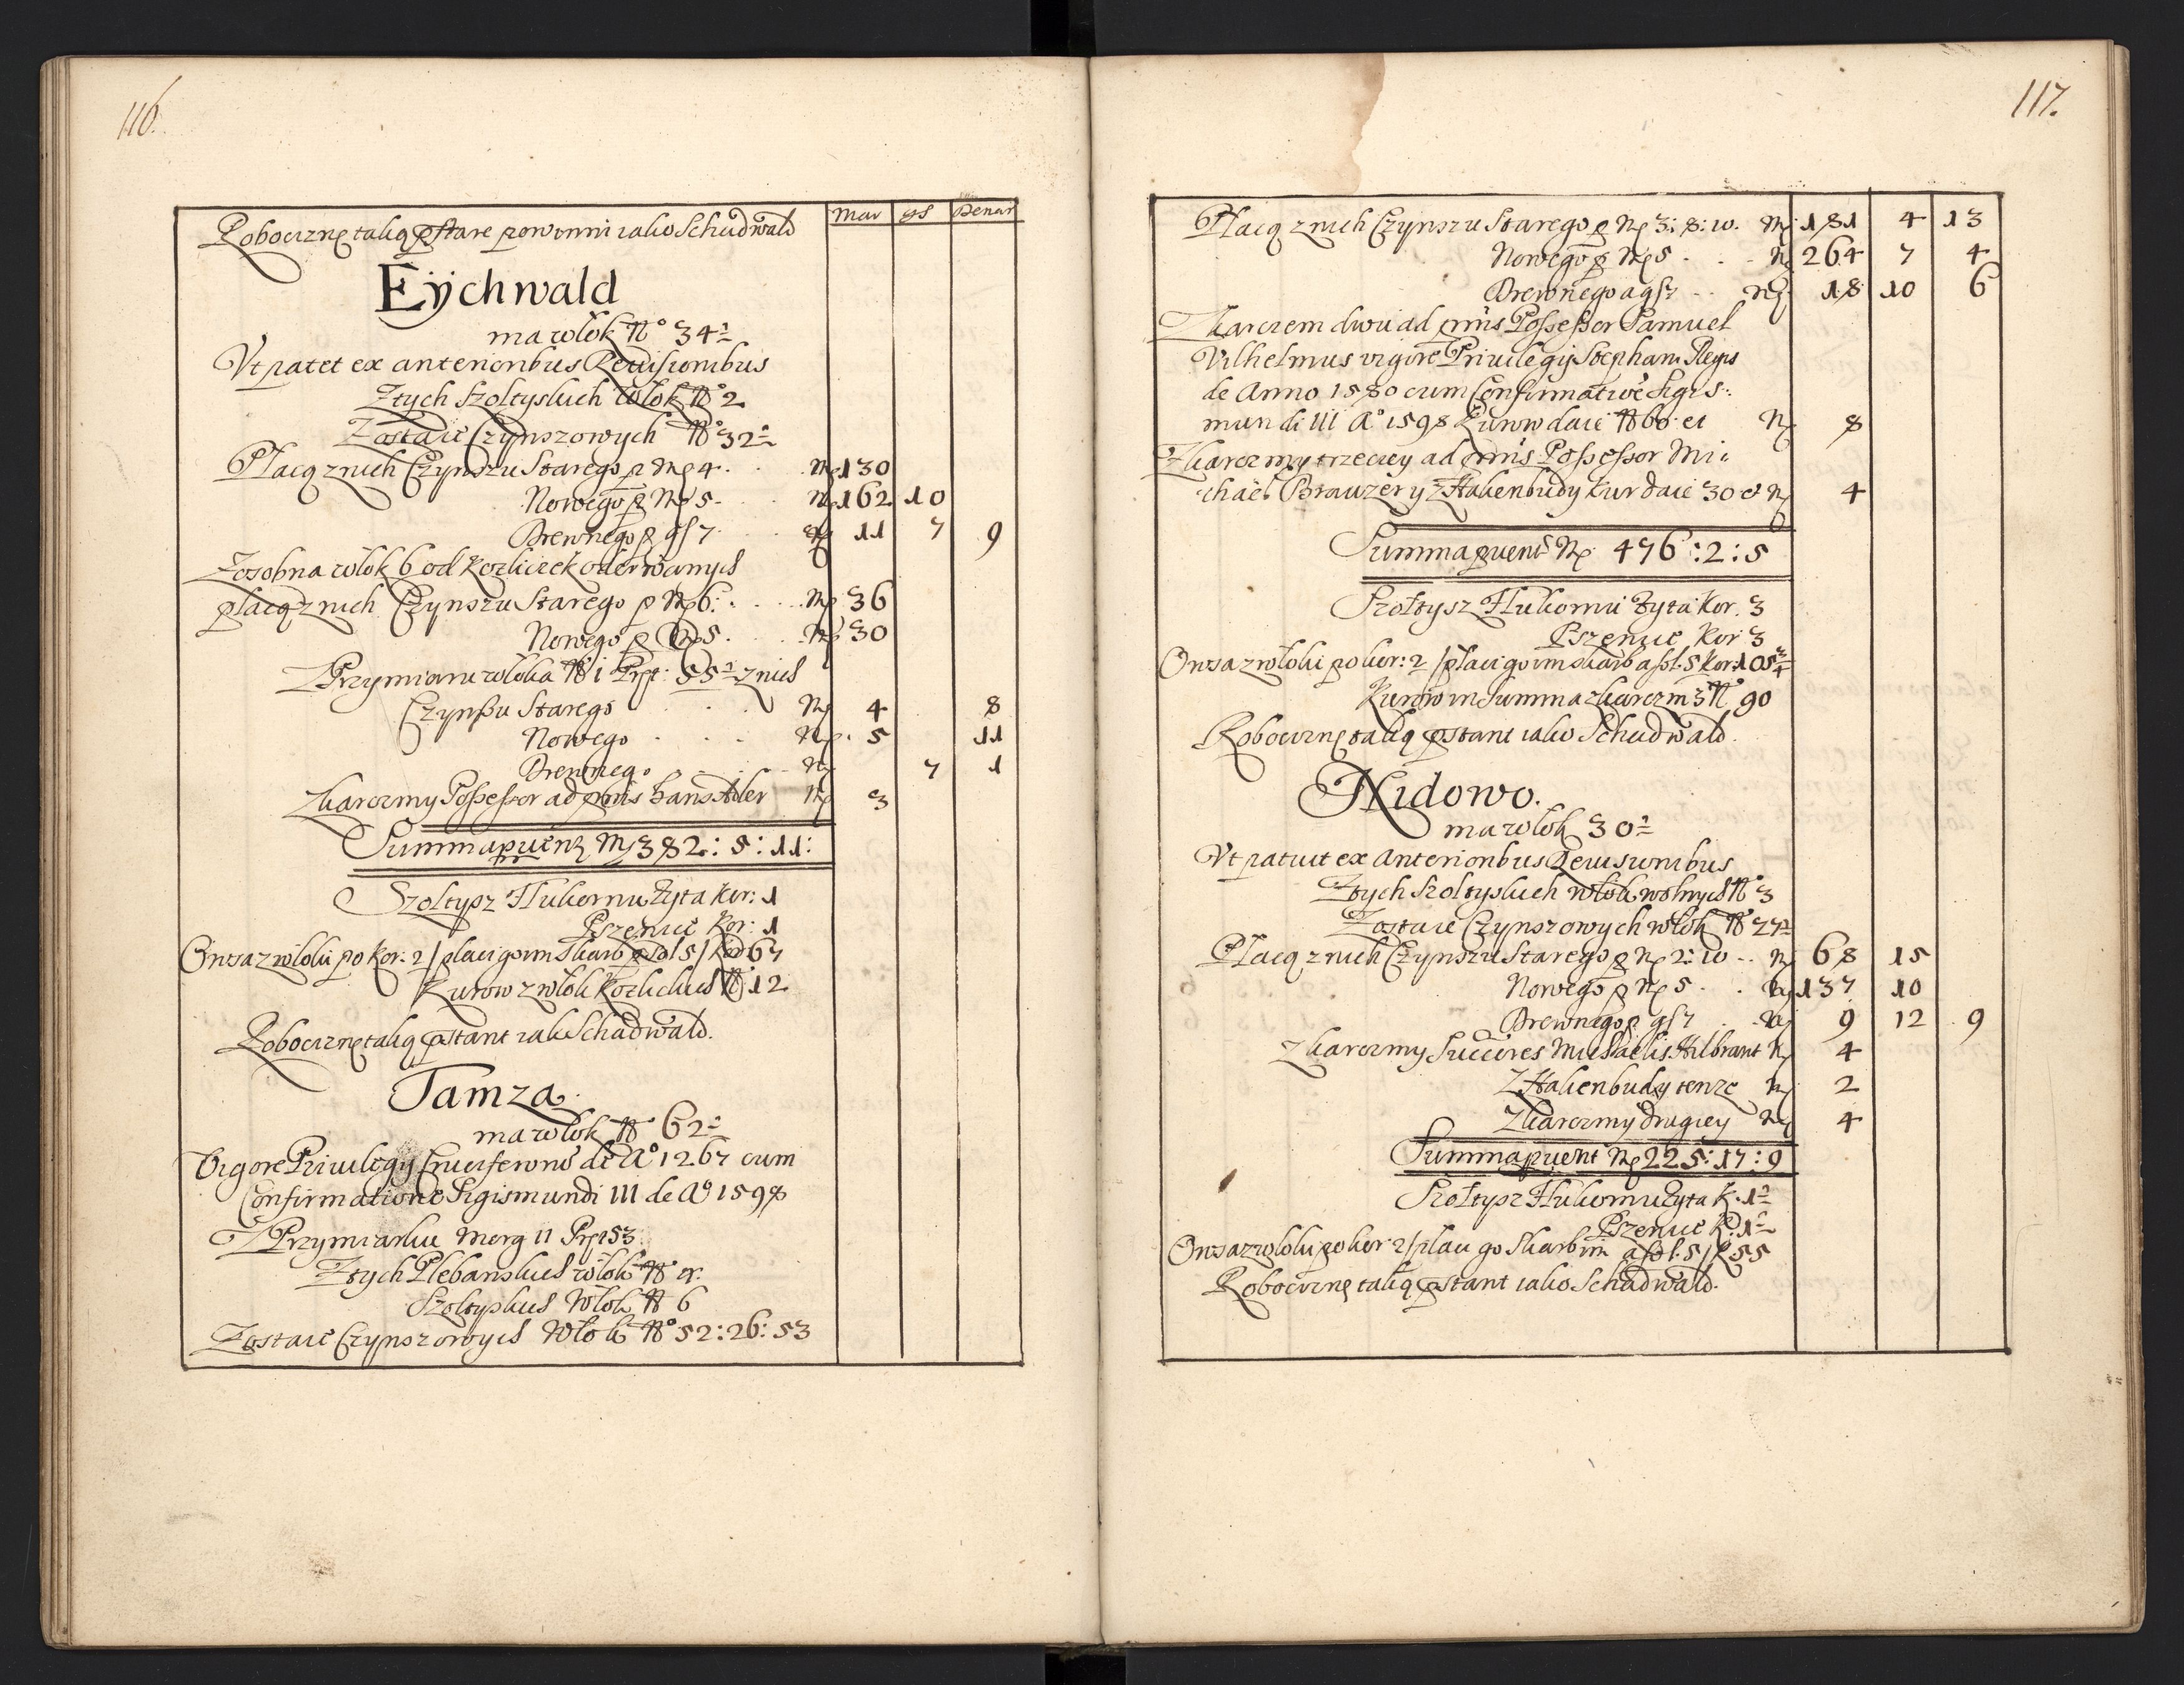 116.
Mar gs Denar
Robociznę talią pstare powinni iako Schadwald
Eÿchwald
ma wlok No 34½
Vt patet ex anterioribus Reuisionibus
Z tych szoltyskich wlok No 2
Zostaie Czynszowych No 32½
Placą z nich Czynszu Starego p Mp 4 . . Mp 130
Nowego p Mp 5 - Mp 162 10
Drewnego p gs 7 . . Mp 11 7 9
Zosobna wlok 6 od Kozliczek oderwanych
placą z nich Czynszu Starego p Mp 6: . . . . Mp 36
Nowego p Mp 5 . . . Mp 30
Z Przymiaru wloka No 1 Prt: 55½ z nich
Czynszu Starego . . . Mp 4 8
Nowego . . . Mp 5 11
Drewnego . . . Mp 7 1
Z karczmy Possessor ad pnis Hans Adler Mp 3
Summa puent Mp 382: 5: 11:
Szoltysz Hukornu Zyta kor: 1
Pszenice Kor: 1
Owsa z wloki po Kor: 2 / placi go im skarb p sol 5 / Kor 67
Kurow z wlok Kozlickich No 12
Robociznę talią pstant iako Schadwald.
Tamza.
ma wlok No 62½
Vigore Priuilegy Cruciferorum de Ao 1267 cum
Confirmatione Sigismundi III de Ao 1598
Z Przymiarku Morg 11 Prt 53.
Z tych Plebanskich wlok No 4.
Szoltyskich Wlok No 6
Zostaie Czynszowych Wlok No 52: 26: 53
117.
Placą z nich Czynszu Starego p Mp 3: 8: 10. Mp 181 4 13
Nowego p Mp 5 . . - Mp 264 7 4
Drewnego a gs 7 - - Mp 18 10 6
Z karczem dwu ad pnis Possessor Samuel
Vilhelmus vigore Priuilegij Stephani Regis
de Anno 1580 cum Confirmatioe Sigis:
mundi III Ao 1598 Kurow daie No 60 et Mp 8
Z karczmy trzeciey ad pnis Possessor Mi:
chael Brauzer y Z Hakenbudy kur daie 30 et Mp 4
Summa puent Mp 476: 2: 5
Szoltysz Hukornu Zyta Kor. 3
Pszenice Kor 3
Owsa z wloki po kor: 2 / placi go im skarb a sol. 5 Kor: 105¾
Kurow in Summa z karczm 3 No 90
Robociznę talią pstant iako Schadwald.
Nidowo.
ma wlok 30½
Vt patuit ex Anterioribus Reuisionibus
Z tych Szoltyskich wlok wolnych No 3
Zostaie Czynszowych wlok No 27½
Placą z nich Czynszu Starego p Mp 2: 10 - . Mp 68 15
Nowego p Mp 5 . . Mp 137 10
Drewnego p gs 7 . . Mp 9 12 9
Z karczmy Succeres Michaelis Hilbrant Mp 4
Z Hakenbudy tenze Mp 2
Z karczmy drugiey Mp 4
Summa puent Mp 225: 17: 9
Szoltysz Hukornu Zyta K. 1½
Pszenice K. 1½
Owsa z wloki po kor 2 / placi go skarb im a sol. 5 / K 55
Robociznę talią pstant iako Schadwald.